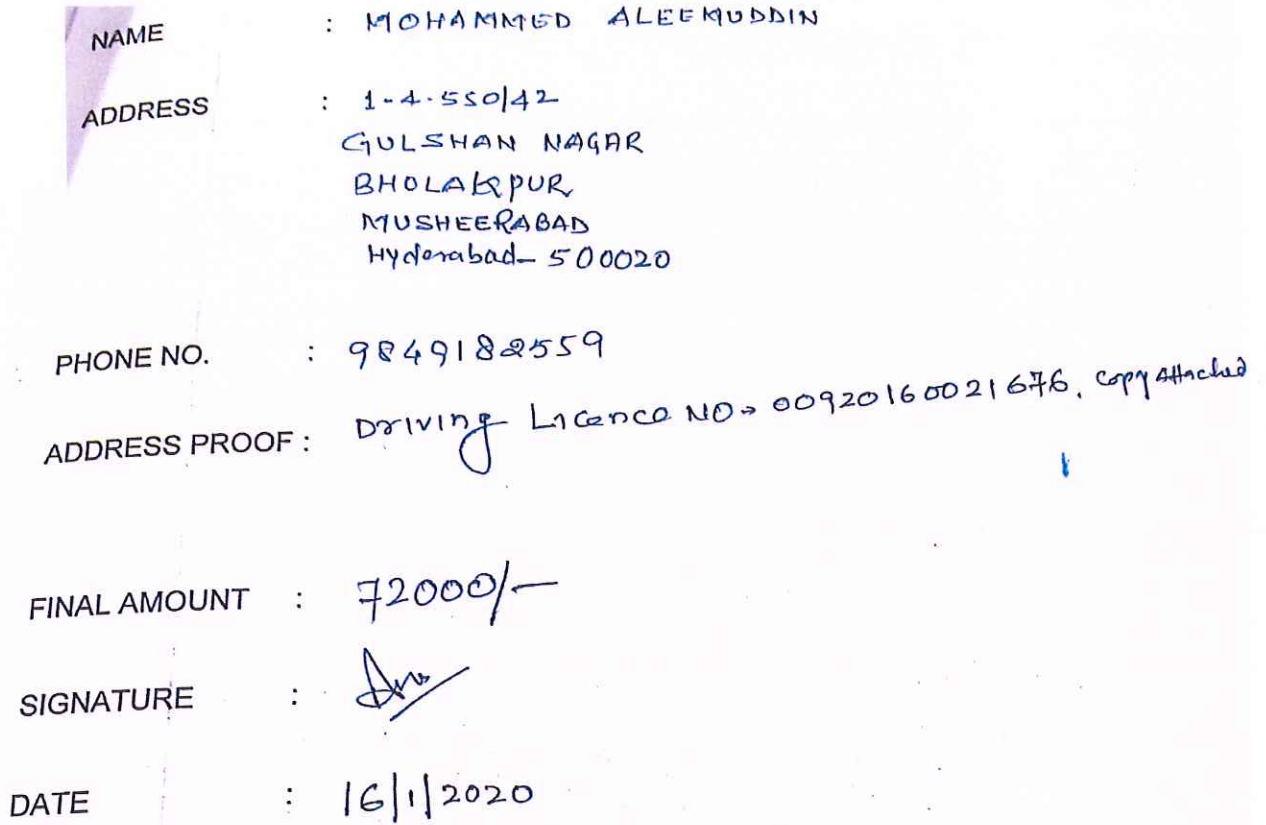 NAME : MOHAMMED ALEEMUDDIN
ADDRESS : 1-4-550/42
GULSHAN NAGAR
BHOLAKPUR
MUSHEERABAD
Hyderabad- 500020
PHONE NO. : 9849182559
ADDRESS PROOF : Driving Licence NO→ 00920160021676, Copy Attached
FINAL AMOUNT : 72000/-
SIGNATURE :
DATE : 16/1/2020